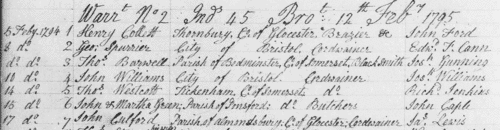 Warrt No 2 Ind 45 Brot 12th Feby 1795
5 Feby 1794 1 Henry Collett Thornbury, Co of Glocester Brazier &c John Ford
8 do 2 Geo: Spurrier City of Bristol Cordwainer Edwd F. Cann
do do 3 Thos Barwell Parish of Bedminster, Co of Somerset, Black Smith Jos: Gunning
10 do 4 John Williams City of Bristol Cordwainer Jos: Williams
14 do 5 Thos Westcott Tickenham, Co of Somerset, do Richd Jenkins
16 do 6 John & Martha Green, Parish of Butchers John Caple
17 do 7 John Parish of Almondsbury, Co of Glocester, Cordwainer Jas Lewis